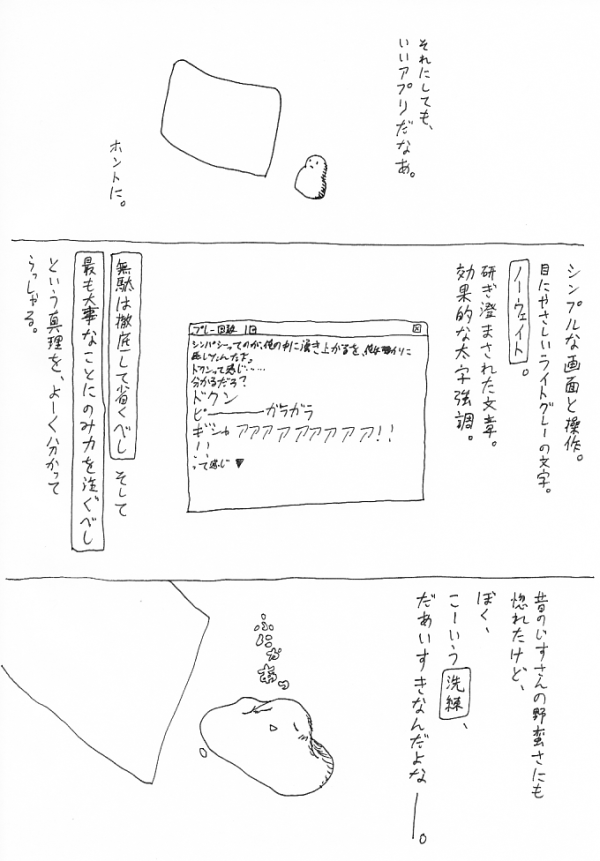 それにしても、
いいアプリだなあ。
ホントに。
シンプルな画面と操作。
目にやさしいライトグレーの文字。
ノーウェイト。
研ぎ澄まされた文章。
効果的な太字強調。
プレー回数 1回
シンパシーってのが、俺の中に湧き上がるを、俺は明かりに
感じたんだよ。
ドクンって感じ……
分かるだろ?
ドクン
ピーーーーガラガラ
ギシャアアアアアアアアア!!
!!
って感じ▼
無駄は徹底して省くべし そして
最も大事なことにのみ力を注ぐべし
という真理を、よーく分かって
らっしゃる。
昔のいすさんの野蛮さにも
惚れたけど、
ぼく、
こーいう洗練、
だあいすきなんだよなー。